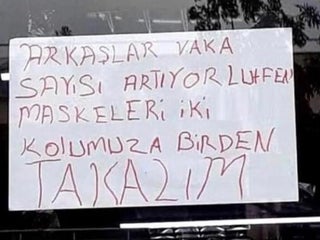 ARKAŞLAR VAKA
SAYISI ARTIYOR LUTFEN
MASKELERİ İKİ
KOLUMUZA BİRDEN
TAKALIM